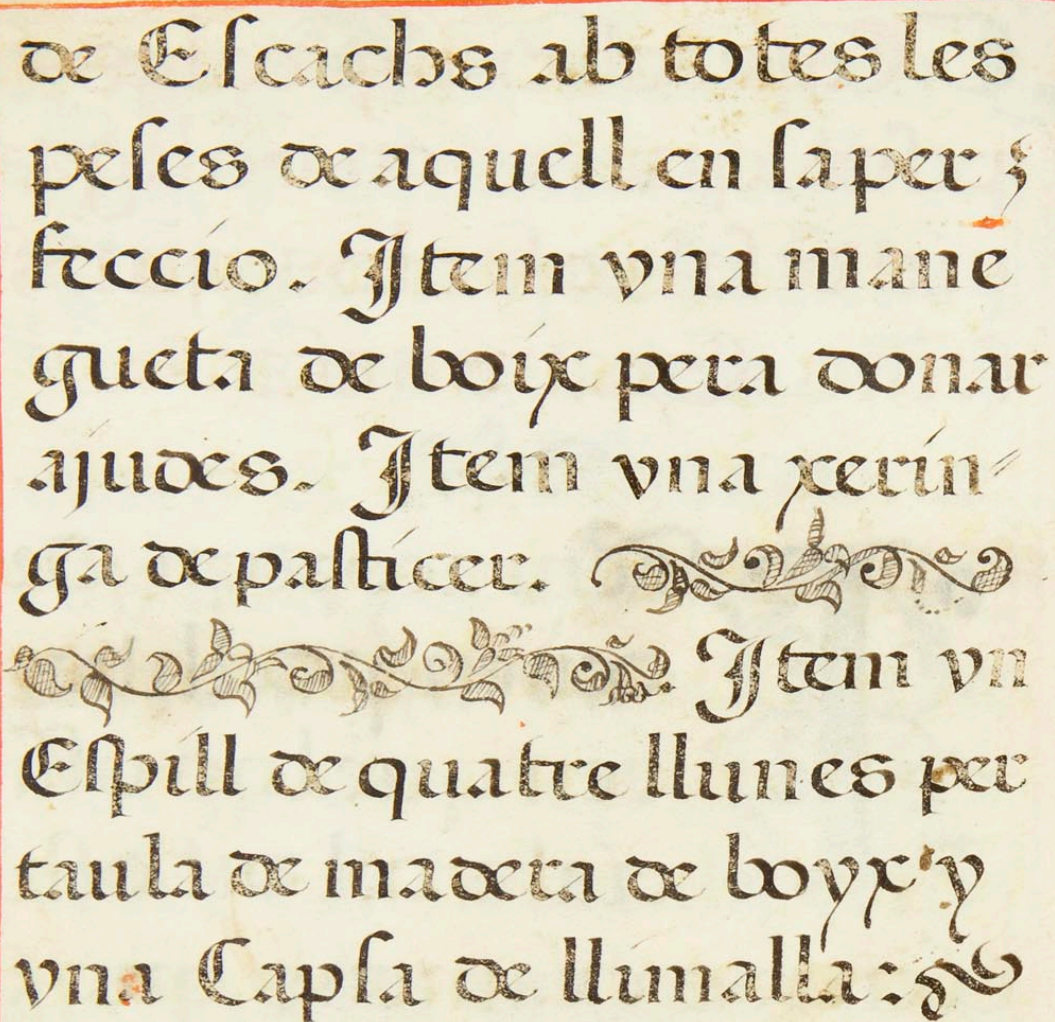 de Eſcachs ab totes les
peſes de aquell en ſa per
feccio. Item vna mane
gueta de boix pera donar
ajudes. Item vna xerin-
ga de paſticer.
Item vn
Eſpill de quatre llunes per
taula de madera de boyx y
vna Capſa de llimalla: